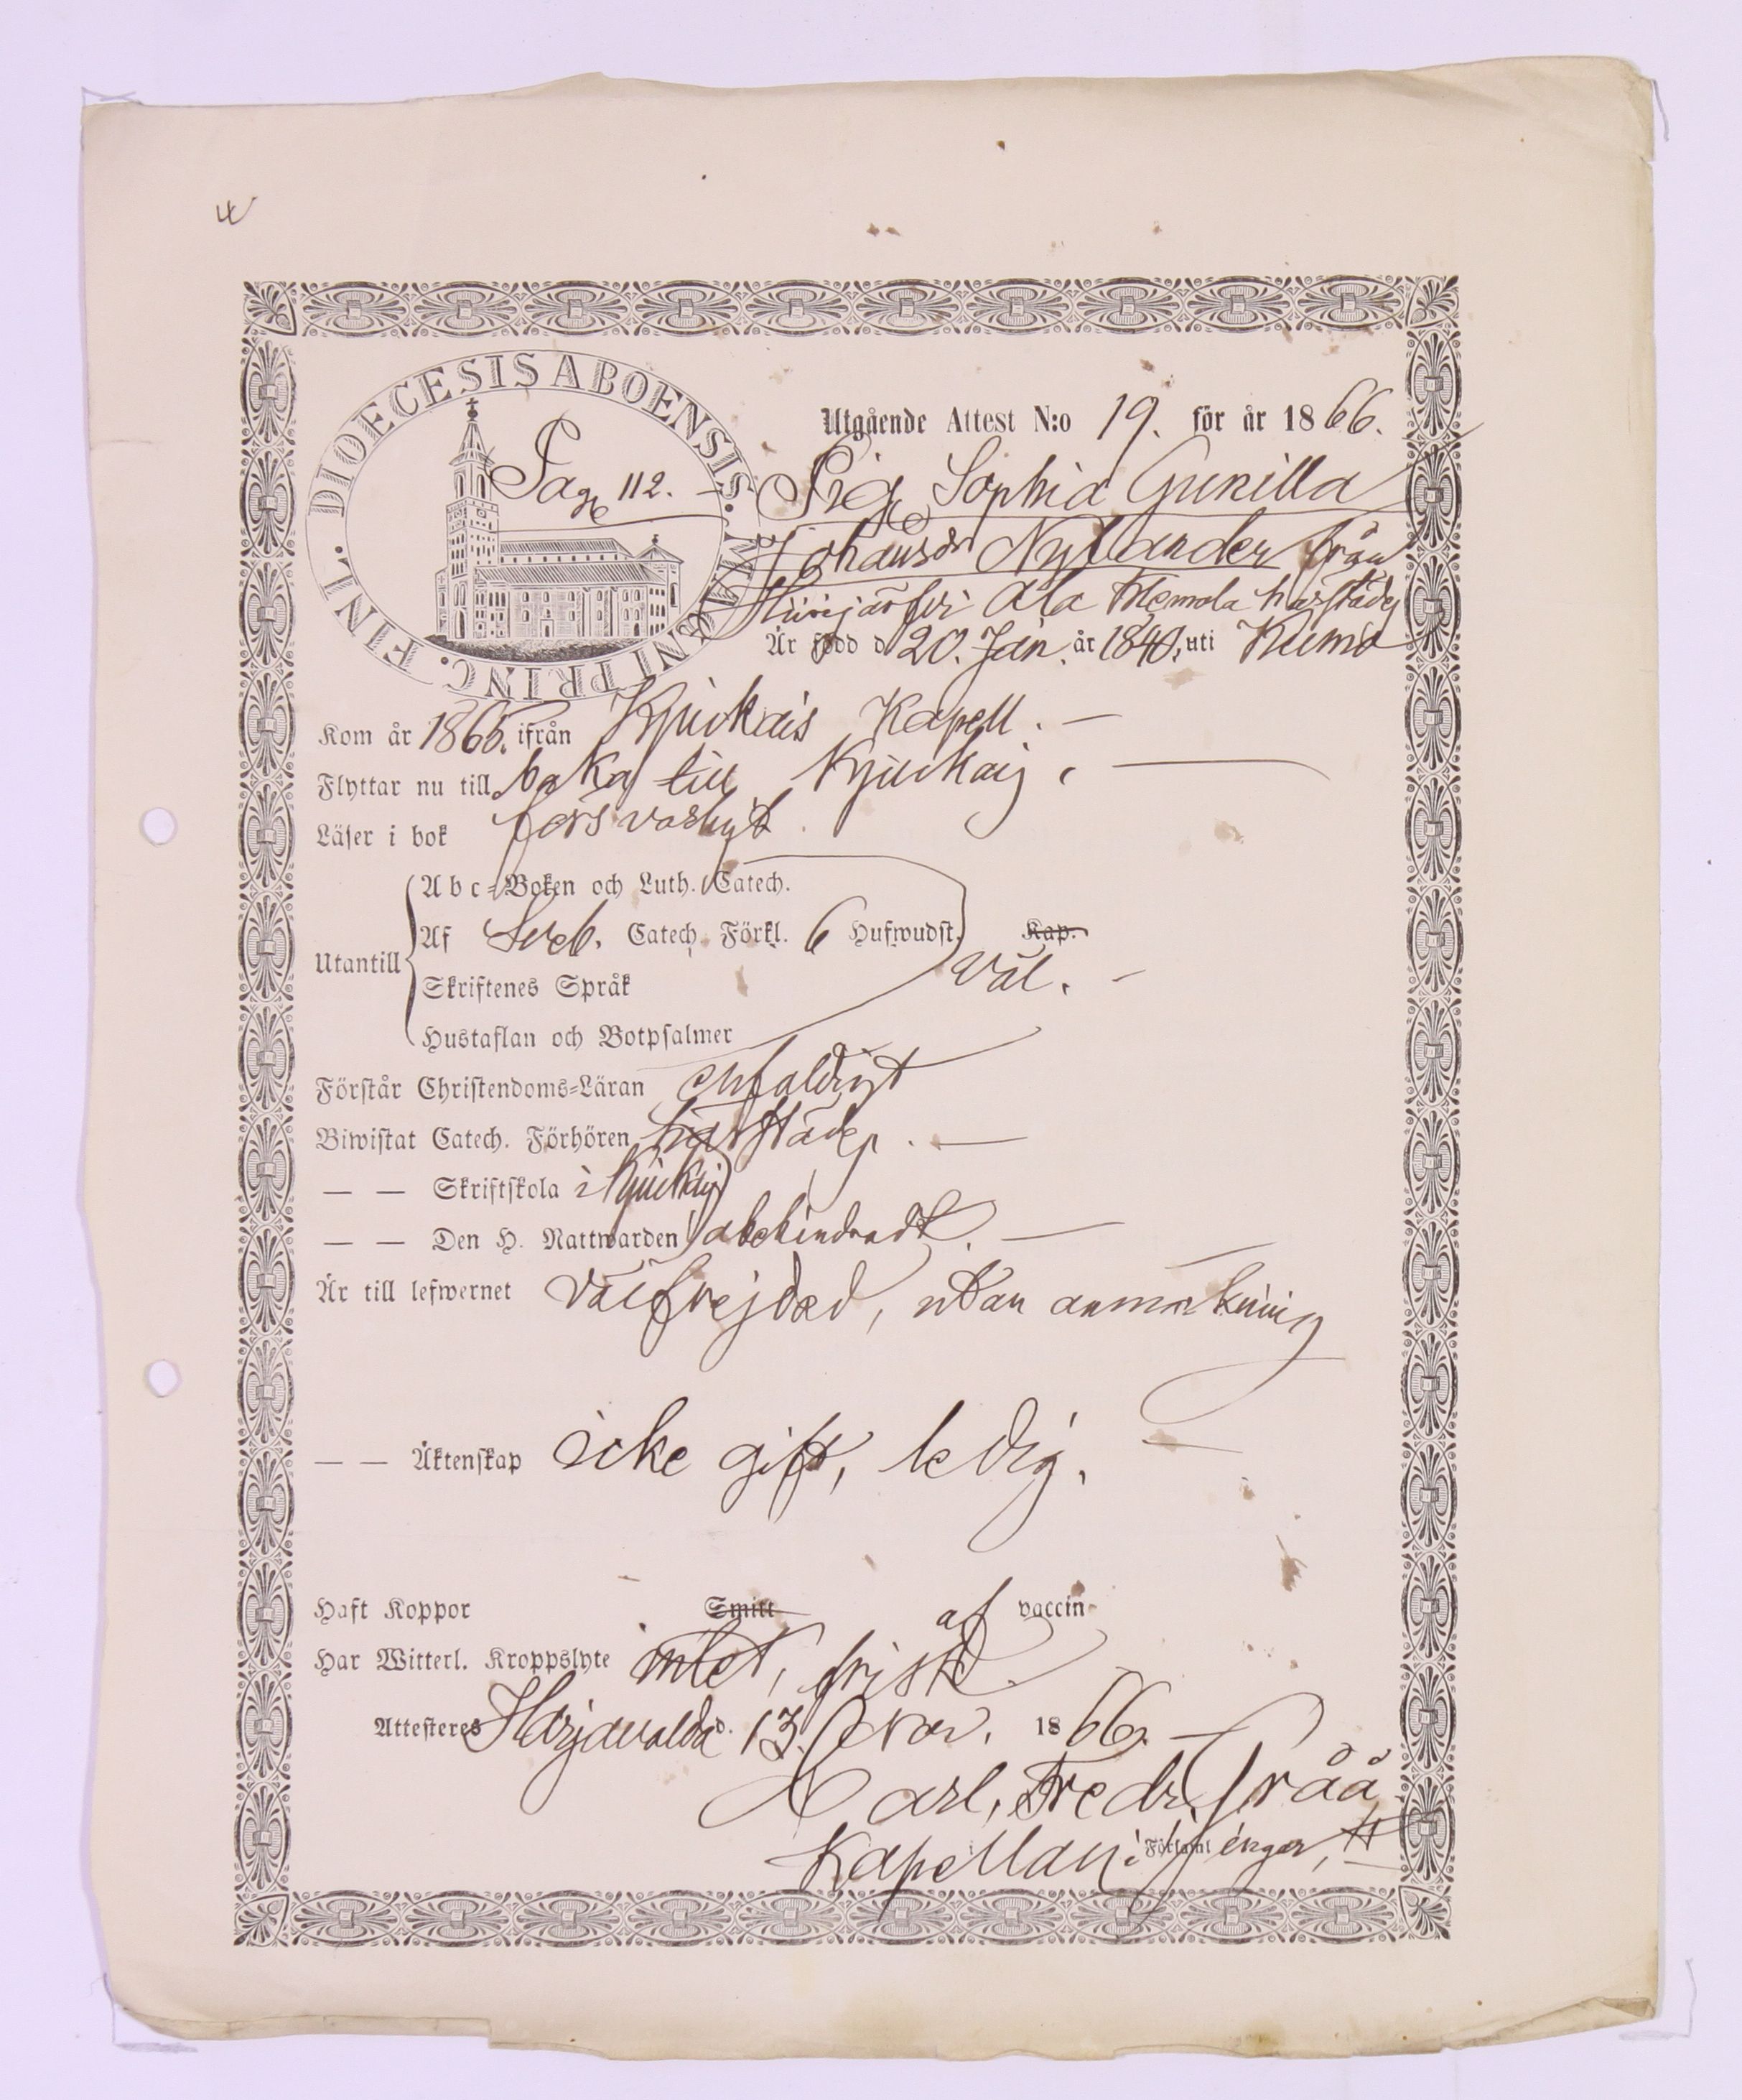 4
DIOECESIS ABOENSIS. MAGNI PRINC. FINL.
Pag 112. –
Utgående Attest N:o 19. för år 1866.
Pig. Sophia Gunilla
Johansdr Nylander från
Hiirijärfvi Ala Memola härstädes
Är född d 20. Jan. år 1840, uti Kumo
Kom år 1865. ifrån Kjuikais Kapell. –
Flyttar nu till baka till Kjuikais. –
Läser i bok försvarligt.
Utantill
Abc-Boken och Luth. Catech.
Af Sveb. Catech. Förkl. 6 Hufwudst. Kap.
Väl. –
Skriftenes Språk
Hustaflan och Botpsalmer
Förstår Christendoms-Läran enfaldigt
Biwistat Catech. Förhören härstädes. –
— — Skriftskola i Kjuikais
— — Den H. Nattwarden obehindradt. –
Är till lefwernet välfrejdad, utan anmärkning
— — Äktenskap icke gift, ledig.
Haft Koppor Smitt af vaccin
Har Witterl. Kroppslyte intet, frisk.
Attesteras Harjavalda d. 13. Nov. 1866. –
Carl. Fredr. Gråå
Kapellan i Församlingen,